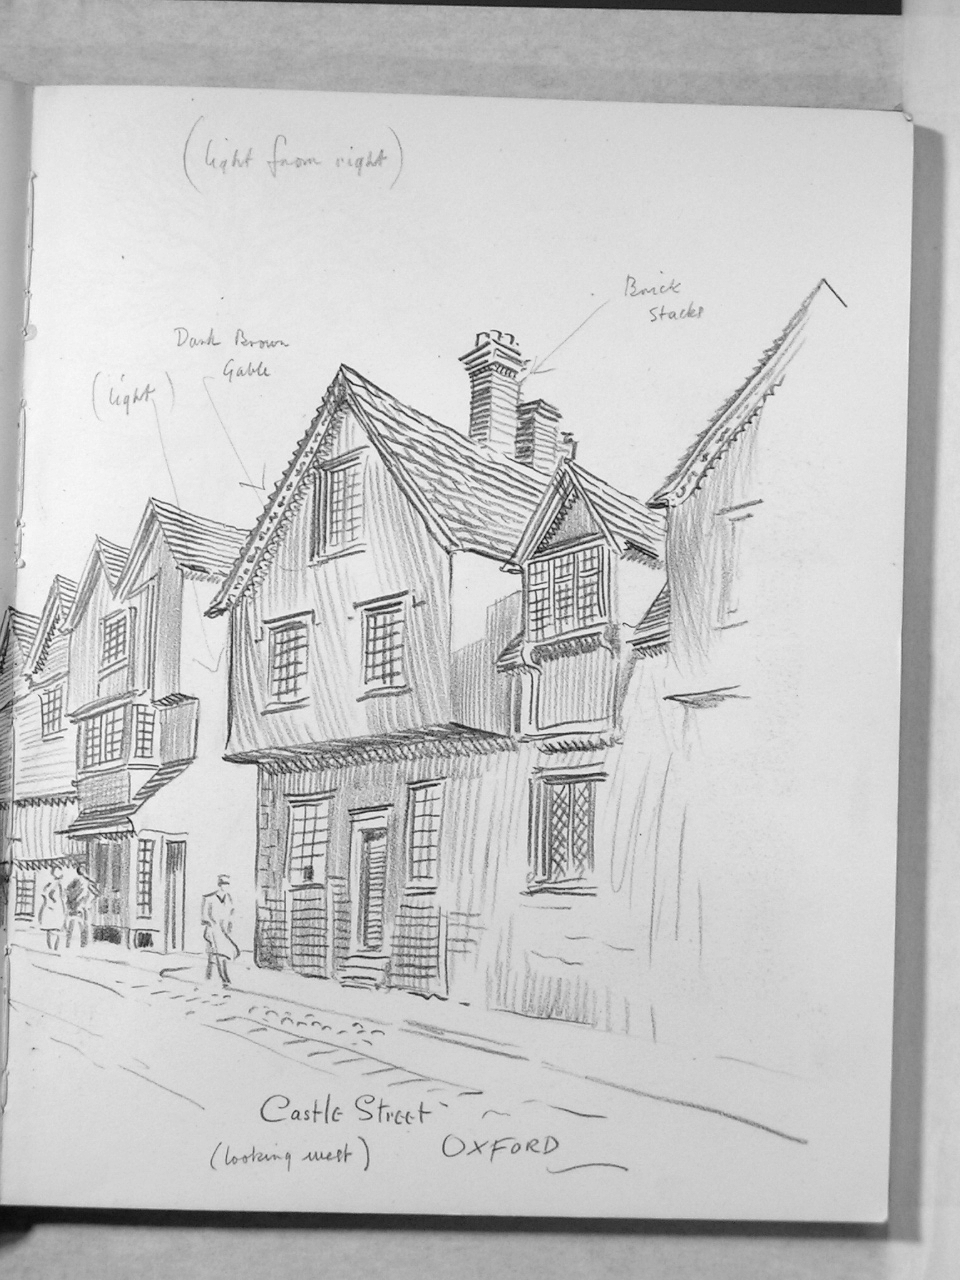 (light from right)
Brick
Stacks
Dark Brown
Gable
(light)
Castle Street
(looking west) OXFORD